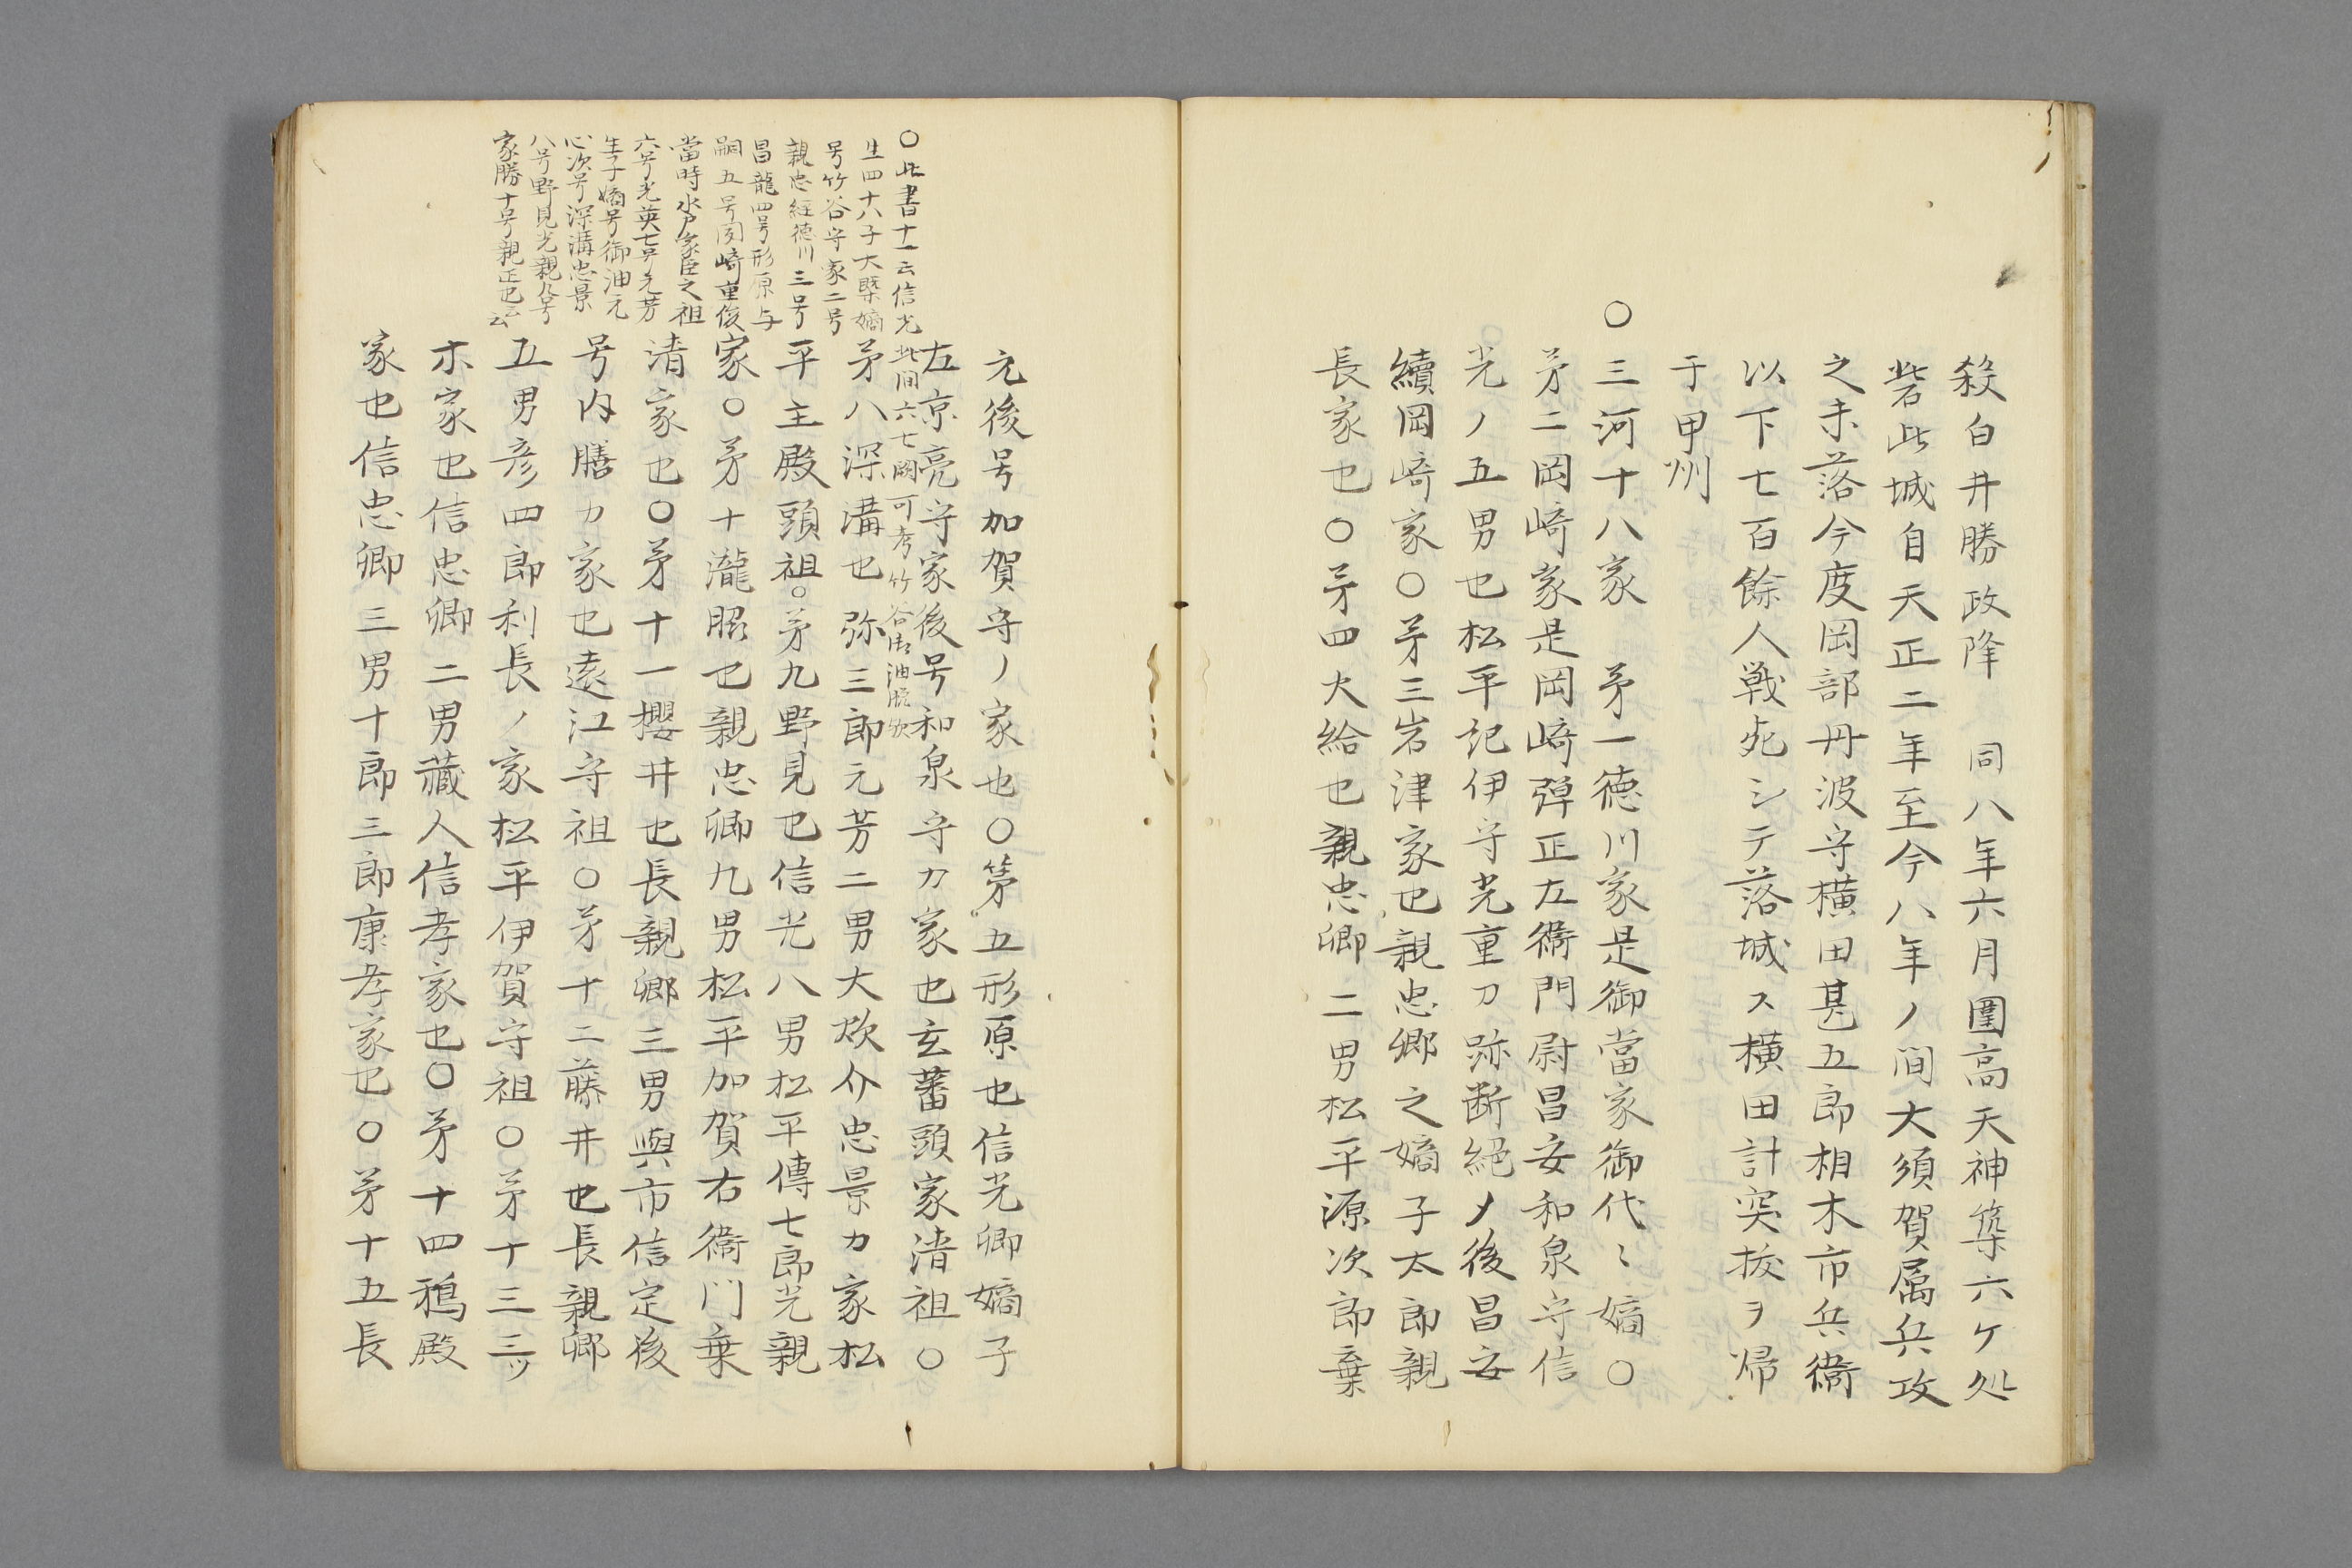 殺白井勝政降　同八年六月圍高天神築六ケ処
砦此城自天正二年至今八年ノ間大須賀属兵攻
之未落今度岡部丹波守横田甚五郎相木市兵衛
以下七百餘人戦死シテ落城ス横田計突拔ヲ帰
于甲州
〇三河十八家　苐一徳川家是御當家御代〻嫡〇
苐二岡﨑家是岡﨑弾正左衛門尉昌安和泉守信
光ノ五男也松平紀伊守光重カ跡断絕メ後昌安
續岡﨑家〇苐三岩津家也親忠郷之嫡子太郎親
長家也〇苐四大給也親忠卿二男松平源次郎乗
元後号加賀守ノ家也〇第五形原也信光卿嫡子
左京亮守家後号和泉守カ家也玄蕃頭家清祖〇
此间六七闕可考竹谷御油脱欤
苐八深溝也弥三郎元芳二男大炊介忠景カ家松
平主殿頭祖〇苐九野見也信光八男松平傳七郎光親
家〇苐十瀧脇也親忠卿九男松平加賀右衛門乗
清家也〇苐十一櫻井也長親郷三男與市信定後
号内膳カ家也遠江守祖〇苐十二藤井也長親郷
五男彦四郎利長ノ家松平伊賀守祖〇苐十三三ツ
木家也信忠卿二男藏人信孝家也〇苐十四鵜殿
家也信忠卿三男十郎三郎康孝家也〇苐十五長
〇此書十一云信光
生四十八子大槩嫡
号竹谷守家二号
親忠経徳川三号
昌龍四号形原与
嗣五号岡﨑重俊
當時水戸家臣之祖
六号光英七号元芳
生子嫡号御油元
心次号深溝忠景
八号野見光親九号
家勝十号親正也云云